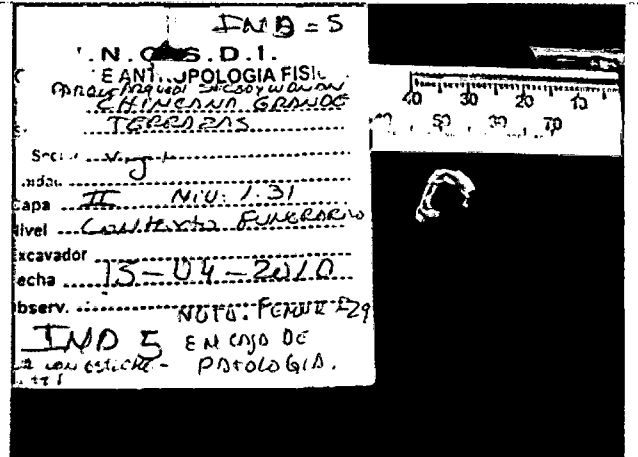 IND = 5
I.N.C S.D.I.
E ANTROPOLOGIA FISI
CHINCANA GRANDE
TERRAZAS
Sect
Capa II NIV: 1.31
Nivel Contexto FUNERARIO
Excavador
echa 15-04-2010
bserv. NOTA: FEMUR IZQ
IND 5 EN CAJA DE
PATOLOGIA.
40 30 20 10 0
50 70